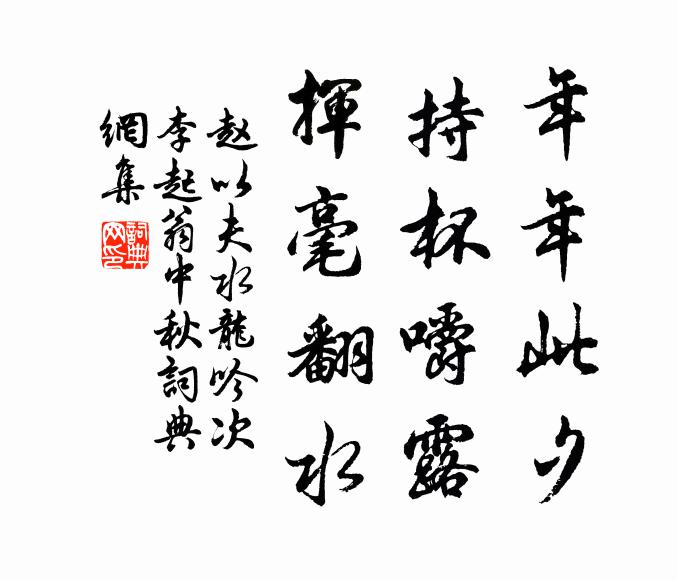 年年此夕
持杯嚼露
揮毫翻水
赵以夫水龍吟次
李起翁中秋詞典
網集
詞典
网印